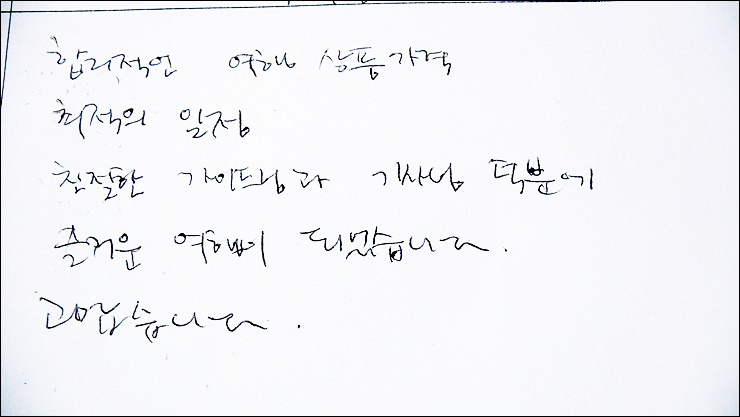 합리적인 여행 상품가격
최적의 일정
친절한 가이드님과 기사님 덕분에
즐거운 여행이 되었습니다.
고맙습니다.